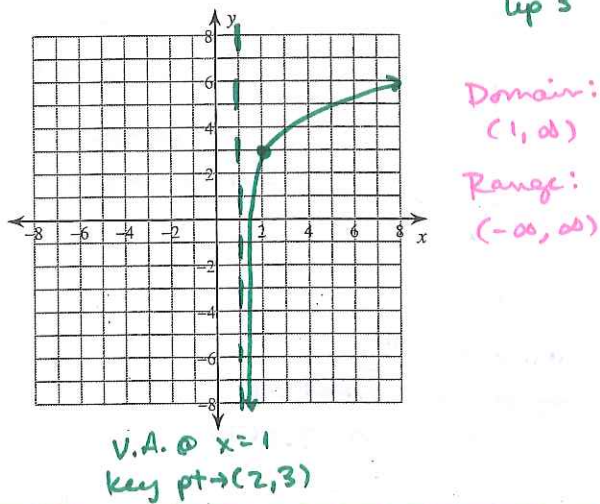 up 3
y
8
6
4
2
-8 -6 -4 -2 2 4 6 8
x
-2
-4
-6
-8
Domain:
(1, ∞)
Range:
(-∞, ∞)
V.A. @ x=1
key pt→(2,3)